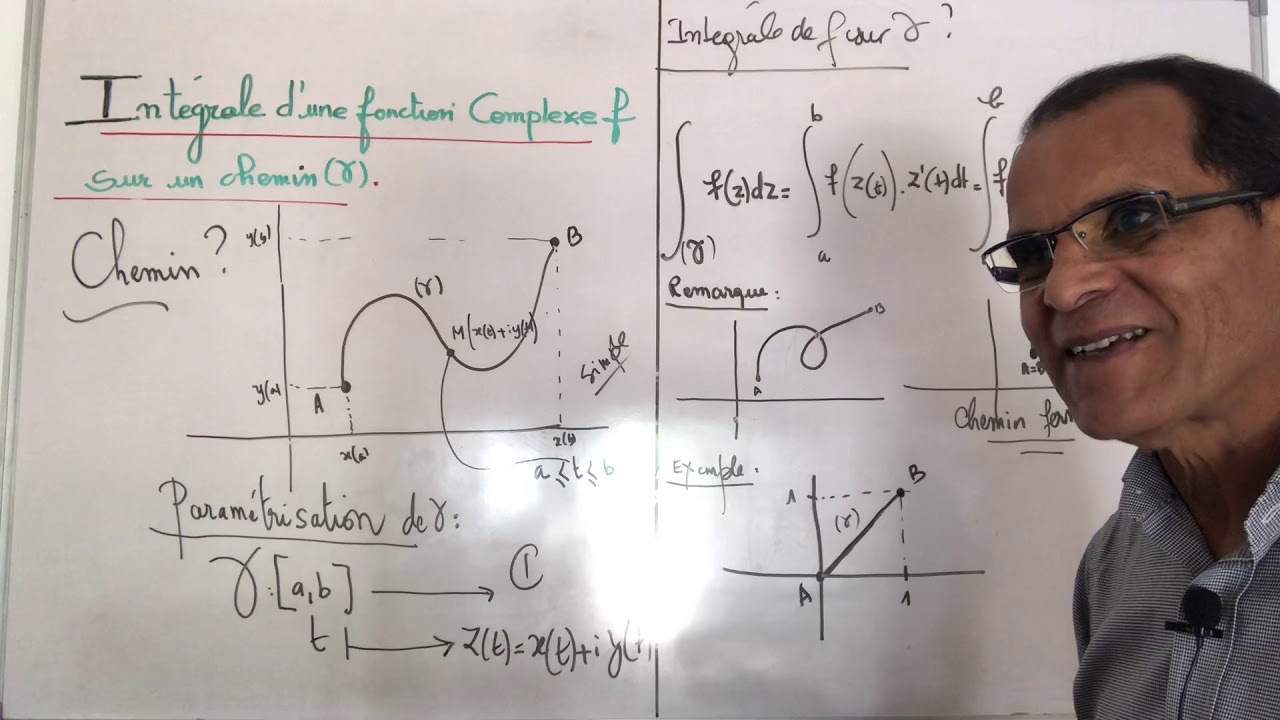 Intégrale d'une fonction Complexe f
sur un chemin (γ).
Chemin ?
y(b)
B
(γ)
M(x(t)+iy(t))
simple
y(a)
A
x(a)
x(b)
a ⩽ t ⩽ b
Paramétrisation de γ:
γ : [a,b] ⟶ ℂ
t ⟼ Z(t) = x(t) + i y(t)
Intégrale de f sur γ ?
∫(γ) f(z)dz = ∫_a^b f(z(t)).z'(t)dt = ∫ f
Remarque :
A
B
A=B
Chemin
Exemple :
1
B
(γ)
A
1